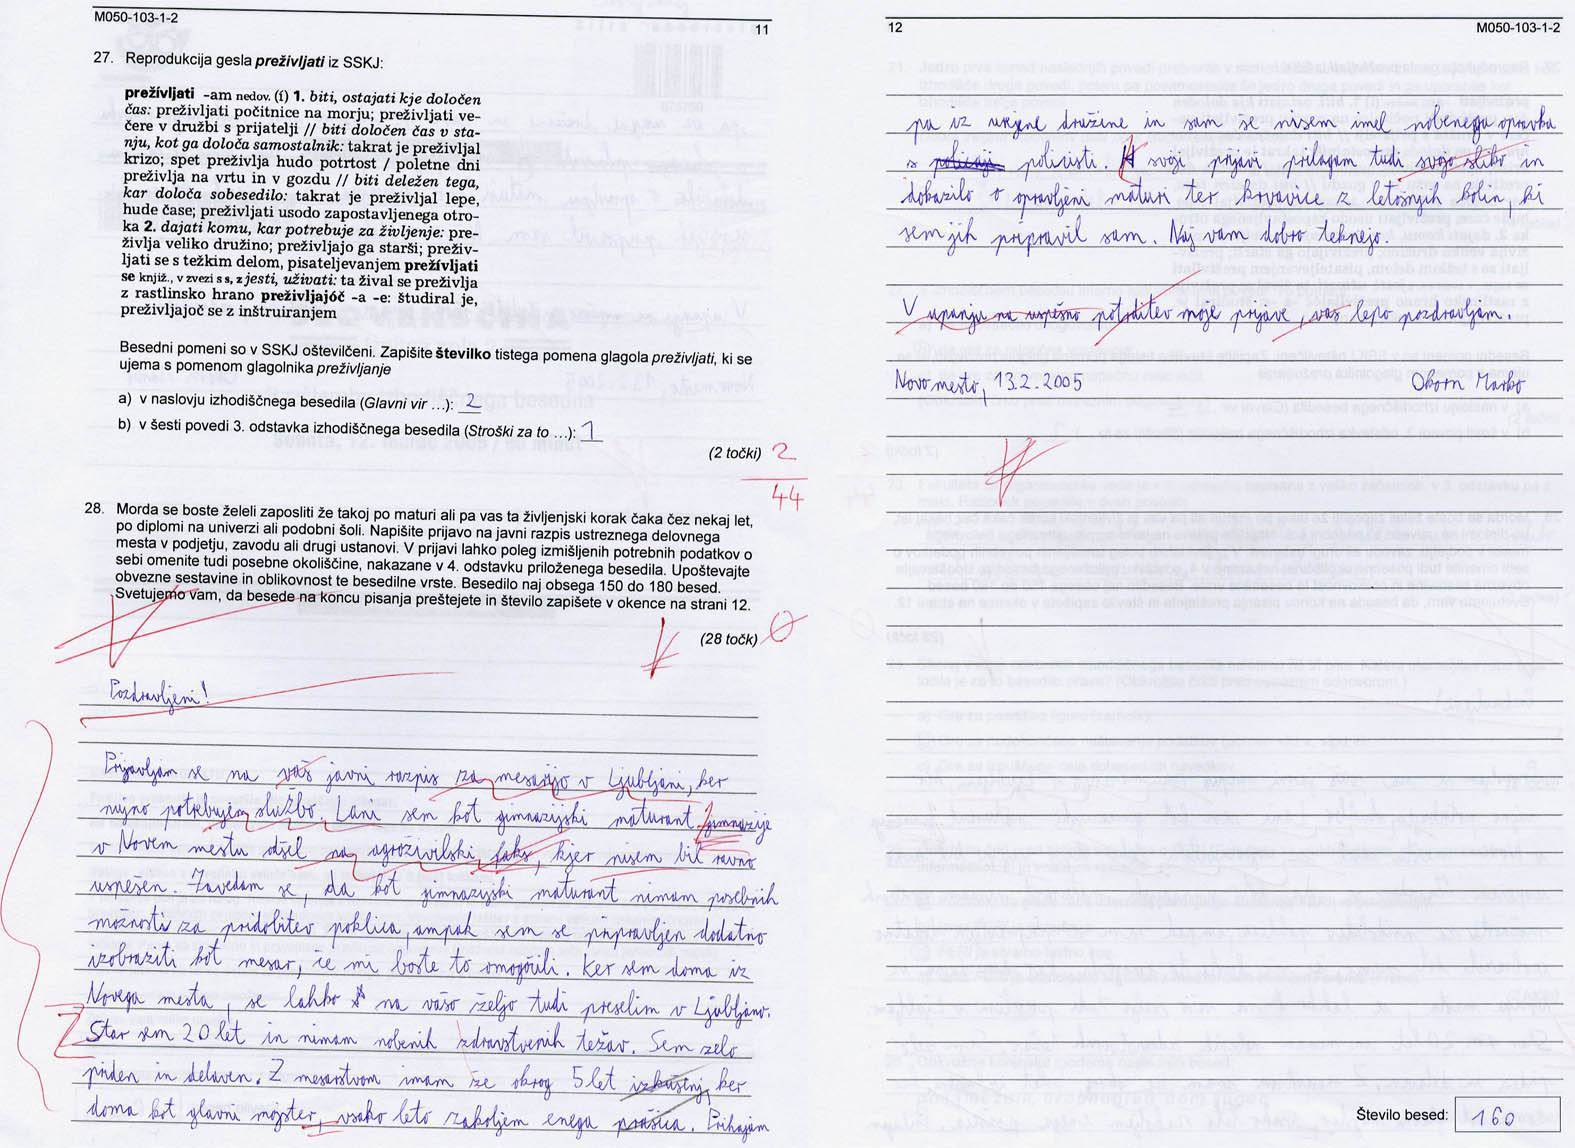 M050-103-1-2
11
27. Reprodukcija gesla preživljati iz SSKJ:
prežívljati -am nedov. (í) 1. biti, ostajati kje določen
čas: preživljati počitnice na morju; preživljati ve-
čere v družbi s prijatelji // biti določen čas v sta-
nju, kot ga določa samostalnik: takrat je preživljal
krizo; spet preživlja hudo potrtost / poletne dni
preživlja na vrtu in v gozdu // biti deležen tega,
kar določa sobesedilo: takrat je preživljal lepe,
hude čase; preživljati usodo zapostavljenega otro-
ka 2. dajati komu, kar potrebuje za življenje: pre-
življa veliko družino; preživljajo ga starši; preživ-
ljati se s težkim delom, pisateljevanjem prežívljati
se knjiž., v zvezi s s, z jesti, uživati: ta žival se preživlja
z rastlinsko hrano preživljajóč -a -e: študiral je,
preživljajoč se z inštruiranjem
Besedni pomeni so v SSKJ oštevilčeni. Zapišite številko tistega pomena glagola preživljati, ki se
ujema s pomenom glagolnika preživljanje
a) v naslovju izhodiščnega besedila (Glavni vir ...): 2
b) v šesti povedi 3. odstavka izhodiščnega besedila (Stroški za to ...): 1
(2 točki) 2
44
28. Morda se boste želeli zaposliti že takoj po maturi ali pa vas ta življenjski korak čaka čez nekaj let,
po diplomi na univerzi ali podobni šoli. Napišite prijavo na javni razpis ustreznega delovnega
mesta v podjetju, zavodu ali drugi ustanovi. V prijavi lahko poleg izmišljenih potrebnih podatkov o
sebi omenite tudi posebne okoliščine, nakazane v 4. odstavku priloženega besedila. Upoštevajte
obvezne sestavine in oblikovnost te besedilne vrste. Besedilo naj obsega 150 do 180 besed.
Svetujemo vam, da besede na koncu pisanja preštejete in število zapišete v okence na strani 12.
(28 točk) 0
Pozdravljeni!
Prijavljam se na vaš javni razpis za mesarijo v Ljubljani, ker
nujno potrebujem službo. Lani sem kot gimnazijski maturant gimnazije
v Novem mestu odšel na agroživilski faks, kjer nisem bil ravno
uspešen. Zavedam se, da kot gimnazijski maturant nimam posebnih
možnosti za pridobitev poklica, ampak sem se pripravljen dodatno
izobraziti kot mesar, če mi boste to omogočili. Ker sem doma iz
Novega mesta, se lahko na vašo željo tudi preselim v Ljubljano.
Star sem 20 let in nimam nobenih zdravstvenih težav. Sem zelo
priden in delaven. Z mesarstvom imam že okrog 5 let izkušenj, ker
doma kot glavni mojster, vsako leto zakoljem enega prašiča. Prihajam
12
M050-103-1-2
pa iz urejene družine in sam se nisem imel nobenega opravka
s policaji policisti. K svoji prijavi prilagam tudi svojo sliko in
dokazilo o opravljeni maturi ter krvavice z letošnjih kolin, ki
sem jih pripravil sam. Naj vam dobro teknejo.
V upanju na uspešno potrditev moje prijave, vas lepo pozdravljam.
Novo mesto, 13.2.2005 Okorn Marko
Število besed: 160